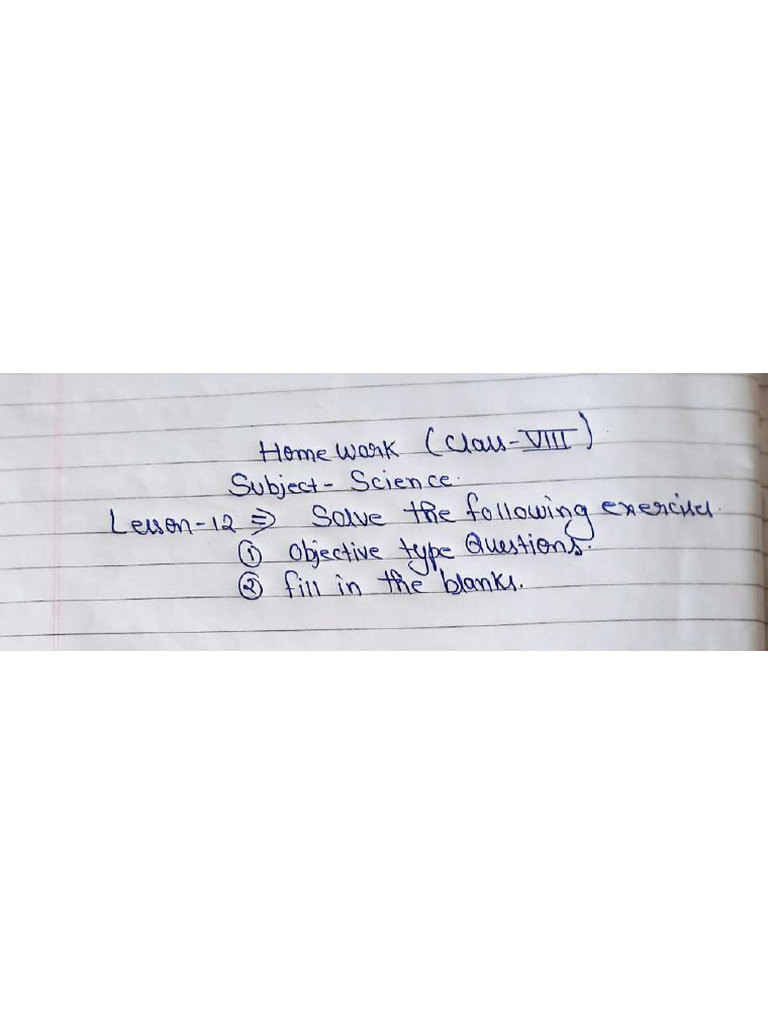 Home Work (Class-VIII)
Subject- Science.
Lesson-12 ⇒ Solve the following exercises.
① Objective type Questions.
② fill in the blanks.